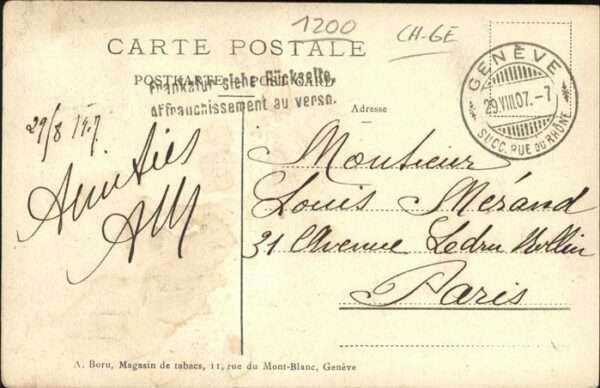 1200
CH-GE
CARTE POSTALE
POSTKARTE POST CARD
Frankatur siehe Rückseite.
Affranchissement au verso.
Adresse
GENÈVE
29.VIII.07.-7
SUCC. RUE DU RHÔNE
29/8 1907
Amitiés
AM
Monsieur
Louis Mérand
31 Avenue Ledru Rollin
Paris
A. Boru, Magasin de tabacs, 11, rue du Mont-Blanc, Genève